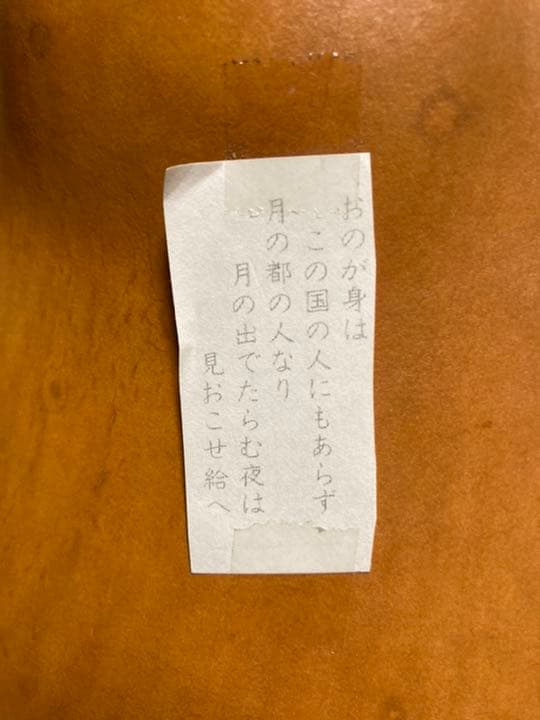 おのが身は
この国の人にもあらず
月の都の人なり
月の出でたらむ夜は
見おこせ給へ